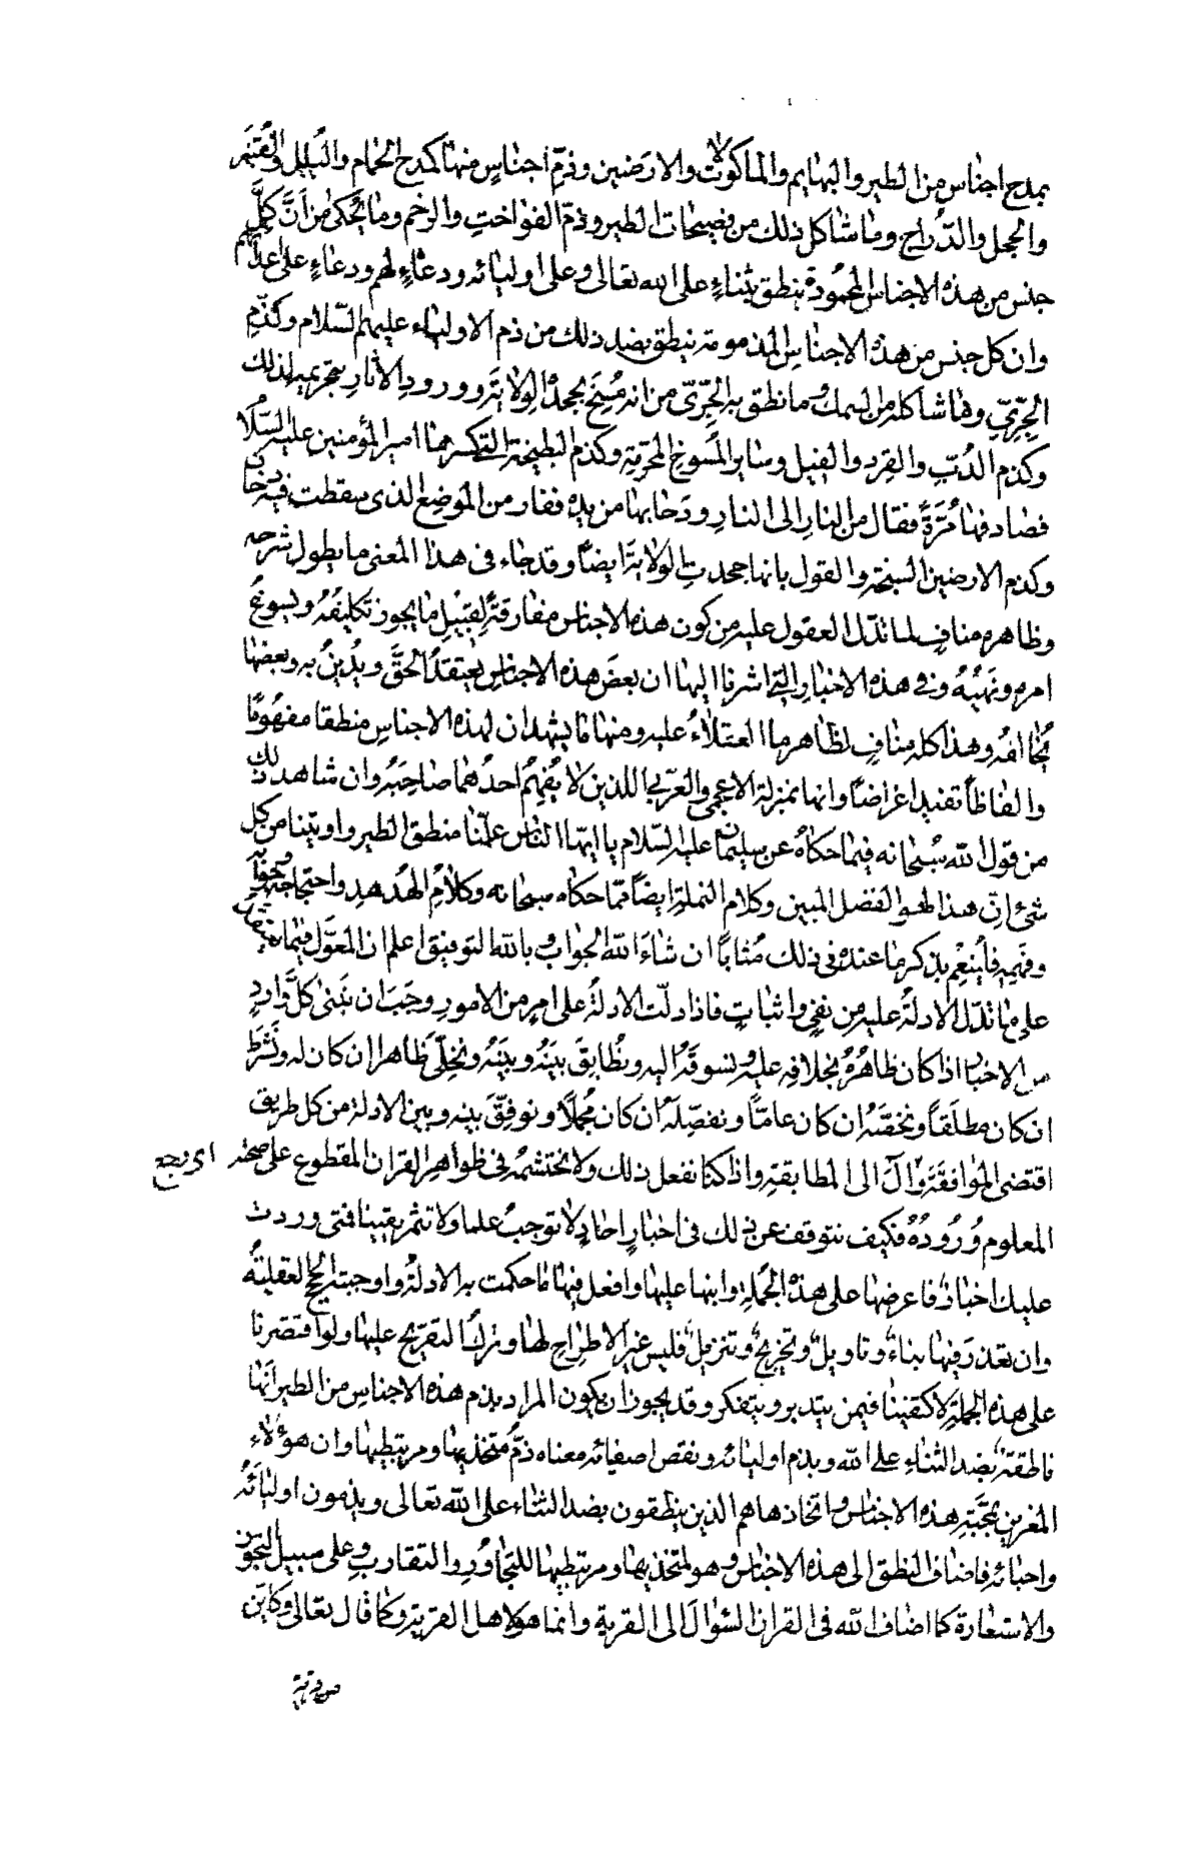 بمدح اجناس من الطير والبهايم والماكولات والارضين وذمّ اجناسٍ منها كمدح الحمام والبلبل والقُنبَر
والحجل والدّراج وما شاكل ذلك من فصيحات الطير وذمّ الفواخت والرخم وما يحكى من أنَّ كلَّ
جنس من هذه الاجناس المحمودة ينطق بثناءٍ على الله تعالى وعلى اوليائه ودعاءٍ لهم ودعاءٍ على اعدائهم
وان كل جنس من هذه الاجناس المذمومة ينطق بضد ذلك من ذم الاولياء عليهم السّلام وكذمّ
الجرّيّ وما شاكله من السمك وما نطق به الجِرّىّ من انه مُسِخَ بجحده الولاية وورود الآثار بتحريمه لذلك
وكذم الدُبّ والقِرد والفيل وساير المُسوخ المحرّمة وكذم البطيخة التي كسرها امير المؤمنين عليه السّلام
فصادفها مُرّةً فقال من النار الى النار ودَحا بها من يده ففار من الموضع الذى سقطت فيه دخان
وكذم الارضين السبخة والقول بانها جحدتِ الولاية ايضاً وقد جاء فى هذا المعنى ما يطول شرحه
وظاهره منافٍ لما تدلّ العقول عليه من كون هذه الاجناس مفارقةً لقَبيلِ ما يجوز تكليفُهُ ويسوغ
امره ونَهيُهُ وفى هذه الاخبار التي اشرنا اليها ان بعضَ هذه الاجناس يعتقد الحقَّ ويُدينُ به وبعضها
يُخالفُه وهذا كله منافٍ لظاهر ما العقلاءُ عليه ومنها ما يشهد ان لهذه الاجناسِ منطقا مفهُومًا
والفاظاً تفيد اغراضًا وانها بمنزلة الاعجمى والعرَبى اللذين لا يُفهِمُ احدُهما صاحِبَهُ وان شاهد ذلك
من قول الله سُبحانه فيما حكاهُ عن سليمان عليه السّلام يا ايّها الناس علّمنا منطق الطير واوتينا من كل
شئ انّ هذا لهو الفضل المبين وكلام النملة ايضاً ممّا حكاه سبحانه وكلامُ الهُدهدِ واحتجاجه وجوابه
وفهمِه فليُنعِم بذكر ما عنده فى ذلك مُثاباً ان شاءَ الله الجواب وبالله التوفيق اعلم ان المعوّل فيما يعتقد
على ما تدلّ الادلةُ عليه من نفىٍ واثباتٍ فاذا دلّت الادلةُ على امرٍ من الامورِ وجَبَ ان نَبنى كلَّ واردٍ
من الاخبار اذا كان ظاهرُهُ بخلافِه عليه ونسوقَهُ اليه ونُطابِقَ بينَهُ وبينَهُ ونخلّى ظاهرا ان كان له ونَشرُطَ
ان كان مطلَقاً ونخصَّهُ ان كان عامًّا ونفصِّلهُ ان كان مُجملًا ونوفِّقَ بينه وبين الادلة من كل طريقٍ
اقتضى الموافقةَ وآلَ الى المطابقةِ واذا كنا نفعل ذلك ولا نحتشمُه فى ظواهرِ القران المقطوع على صحّته اى نرجع
المعلوم وُرُودُهُ فكيف نتوقف عن ذلك فى اخبارِ احادٍ لا توجبُ علما ولا تثمر يقينا فمتى وردت
عليك اخبارٌ فاعرضها على هذه الجُملةِ وابنها عليها وافعل فيها ما حكمت به الادلةُ واوجبته الحُجج العقليّةُ
وان تعذّرَ فيها بناءٌ وتاويلٌ وتخريجٌ وتنزيلٌ فليس غيرَ الاطراحِ لها وتركُ التعريج عليها ولو اقتصرنا
على هذه الجملةِ لاكتفينا فيمن يتدبر ويتفكر وقد يجوز ان يكون المراد بذم هذه الاجناسِ من الطير انها
ناطقةٌ بضد الثناءِ على الله وبذم اوليائه ونقص اصفيائه معناه ذمُّ متّخذيها ومرتبطيها وان هؤلاء
المغرين بمحبّة هذه الاجناس واتخاذها هم الذين ينطقون بضد الثناء على الله تعالى ويذمون اوليائَهُ
واحبائه فاضاف النطق الى هذه الاجناس وهو لمتخذيها ومرتبطيها للتجاوُرِ والتقاربِ وعلى سبيل التجوّز
والاستعارة كما اضاف الله فى القرآن السّؤالَ الى القرية وانما هو لاهل القرية وكما قال تعالى وكايّن
من قرية